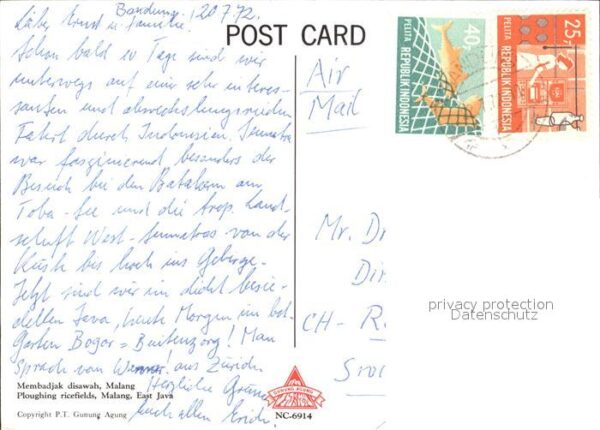 Bandung, 20.7.72.
Lieber Ernst u. Familie!
Schon bald 10 Tage sind wir
unterwegs auf einer sehr interes-
santen und abwechslungsreichen
Fahrt durch Indonesien. Sumatra
war faszinierend besonders der
Besuch bei den Bataken am
Toba-See und die trop. Land-
schaft West-Sumatras von der
Küste bis hoch ins Gebirge.
Jetzt sind wir im dicht besie-
delten Java, heute Morgen im bot.
Garten Bogor = Buitenzorg! Man
sprach von Werner! aus Zürich
Herzliche Grüsse
Euch allen Erich.
POST CARD
Air
Mail
40,-
PELITA
REPUBLIK INDONESIA
25,-
PELITA
REPUBLIK INDONESIA
Mr. Dr
Dir
CH - R
privacy protection
Datenschutz
Membadjak disawah, Malang
Ploughing ricefields, Malang, East Java
Copyright P.T. Gunung Agung
GUNUNG AGUNG
NC-6914